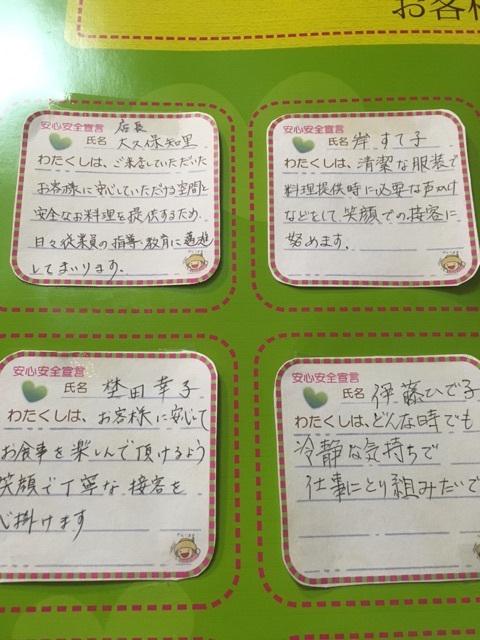 お客
安心安全宣言
店長
氏名 大久保知里
わたくしは、ご来店していただいた
お客様に安心していただける空間と
安全なお料理を提供するため
日々従業員の指導・教育に邁進
してまいります。
安心安全宣言
氏名 岸 すて子
わたくしは、清潔な服装で
料理提供時に必要な声かけ
などをして、笑顔での接客に
努めます。
安心安全宣言
氏名 埜田幸子
わたくしは、お客様に安心して
お食事を楽しんで頂けるよう
笑顔で丁寧な接客を
心掛けます
安心安全宣言
氏名 伊藤ひで子
わたくしは、どんな時でも
冷静な気持ちで
仕事にとり組みたいで